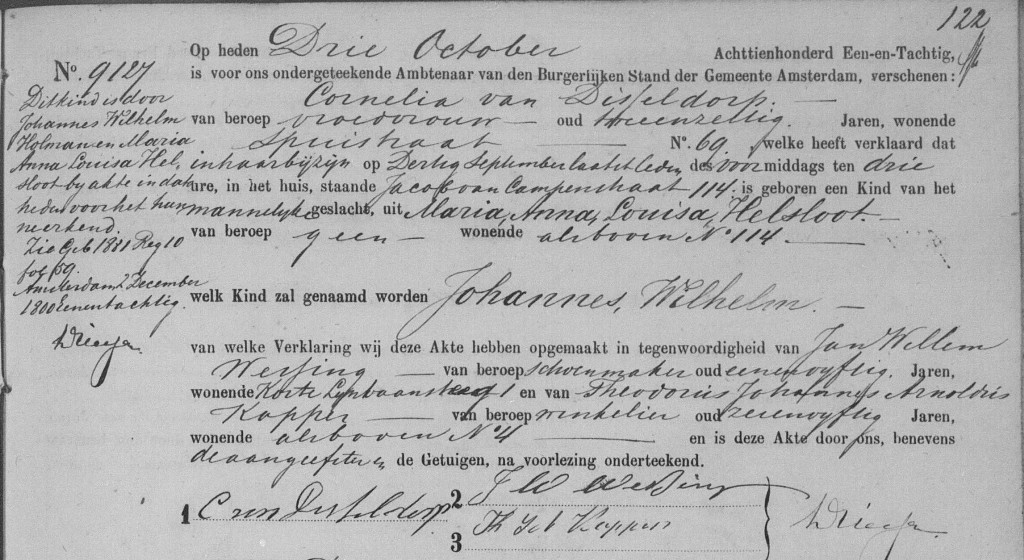 122
Op heden Drie October Achttienhonderd Een-en-Tachtig,
No. 9127 is voor ons ondergeteekende Ambtenaar van den Burgerlijken Stand der Gemeente Amsterdam, verschenen:
Dit kind is door
Johannes Wilhelm
Holman en Maria
Anna Louisa Hel,
sloot by akte in dato
heden voor het hun
neerkend.
Zie Geb 1881 Reg 10
fo 59.
Amsterdam 2 December
1800 Eenentachtig.
Cornelia van Disseldorp. —
van beroep vroedvrouw — oud tweenzestig. Jaren, wonende
Spuistraat — No. 69. welke heeft verklaard dat
in haar bijzijn op Dertig September laatstleden des voormiddags ten drie
ure, in het huis, staande Jacob van Campenstraat 114. is geboren een Kind van het
mannelijke geslacht, uit Maria, Anna, Louisa, Helsloot. —
van beroep geen — wonende alsboven No 114. —
welk Kind zal genaamd worden Johannes, Wilhelm. —
van welke Verklaring wij deze Akte hebben opgemaakt in tegenwoordigheid van Jan Willem
Wersing — van beroep schoenmaker oud eenenvyftig. Jaren,
wonende Korte Lynbaansteeg 1 en van Theodorus Johannes Arnoldus
Kapper — van beroep winkelier oud zevenvyftig Jaren,
wonende alsboven No 4 — en is deze Akte door ons, benevens
de aangeefster en de Getuigen, na voorlezing onderteekend.
1 C van Disseldorp
2 J W Wersing
3 Th Joh Kapper